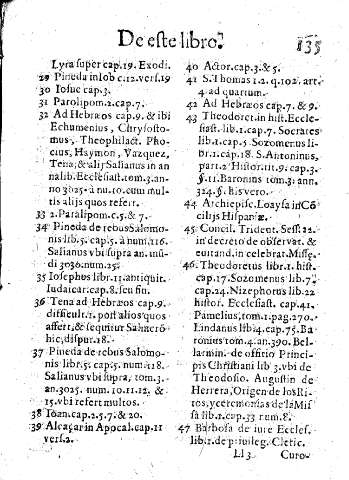 De este libro.
135
Lyra super cap.19. Exodi.
29 Pineda in Iob c.12. vers.19
30 Iosue cap.3.
31 Parolipom.2.cap.7.
32 Ad Hebræos cap.9. & ibi
Echumenius, Chrysosto-
mus, Theophilact. Pho-
cius, Haymon, Vazquez,
Tena, & alij Salianus in an
nalib. Ecclesiast. tom.3. ann.
anno 3025. à nu.10. cum mul-
tis alijs quos refert.
33 2. Paralipom.c.5. & 7.
34 Pineda de rebus Salomo-
nis lib.5. cap.5. à num.116.
Salianus vbi supra an. mũ-
di 3036. num.25.
35 Iosephus liber.11. antiquit.
Iudaicar.cap.8. seu fin.
36 Tena ad Hebræos cap.9.
difficult.1. post alios quos
affert, & sequitur Salmerõ
hic, dispur.18.
37 Pineda de rebus Salomo-
nis libr.5. cap.5. num.118.
Salianus vbi supra, tom.3.
an.3025. num.10.11.12. &
15. vbi refert multos.
38 Ioan.cap.2.5.7. & 20.
39 Alcaçar in Apocal.cap.11
vers.2.
40 Actor.cap.3. & 5.
41 S.Thomas 1.2.q.102. art.
4. ad quartum.
42 Ad Hebræos cap.7. & 9.
43 Theodoret.in hist.Eccle-
siast. lib.1.cap.7. Socrates
lib.1.cap.5. Sozomenus li-
br.1.cap.18. S.Antoninus,
part.2. Histor.tit.9. cap.3.
§.11. Baronius tom.3. ann.
324. §. His vero.
44 Archiepisc. Loaysa in Cõ
cilijs Hispaniæ.
45 Concil. Trident. Sess.22.
in decreto de observat. &
euitand. in celebrat. Missę.
46 Theodoretus libr.1. hist.
cap.17. Sozomenus lib.7.
cap.24. Nizephorus lib.22
histor. Ecclesiast. cap.41.
Pamelius, tom.1. pag.270.
Landanus lib.4. cap.75. Ba-
ronius tom.4. an.390. Bel-
larmin. de officio Princi-
pis Christiani lib 3. vbi de
Theodosio. Augustin de
Herrera, Origen de los Ri-
tos, y ceremonias de la Mis
sa lib.1. cap.33 num.8.
47 Barbosa de iure Eccles.
lib.1. de priuileg. Cletic.
Ll 3
Curo-